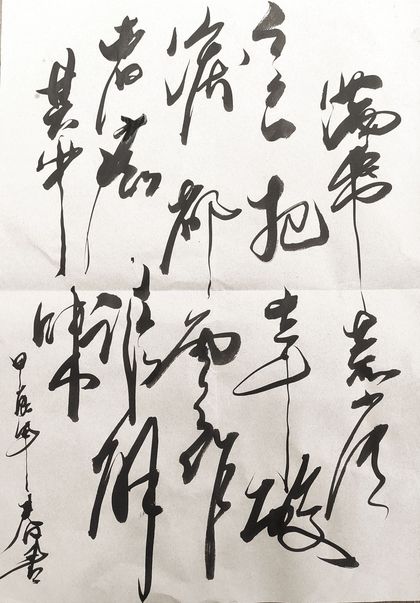 满纸荒唐
言一把辛酸
泪都云作
者痴谁解
其中味
甲辰年春书